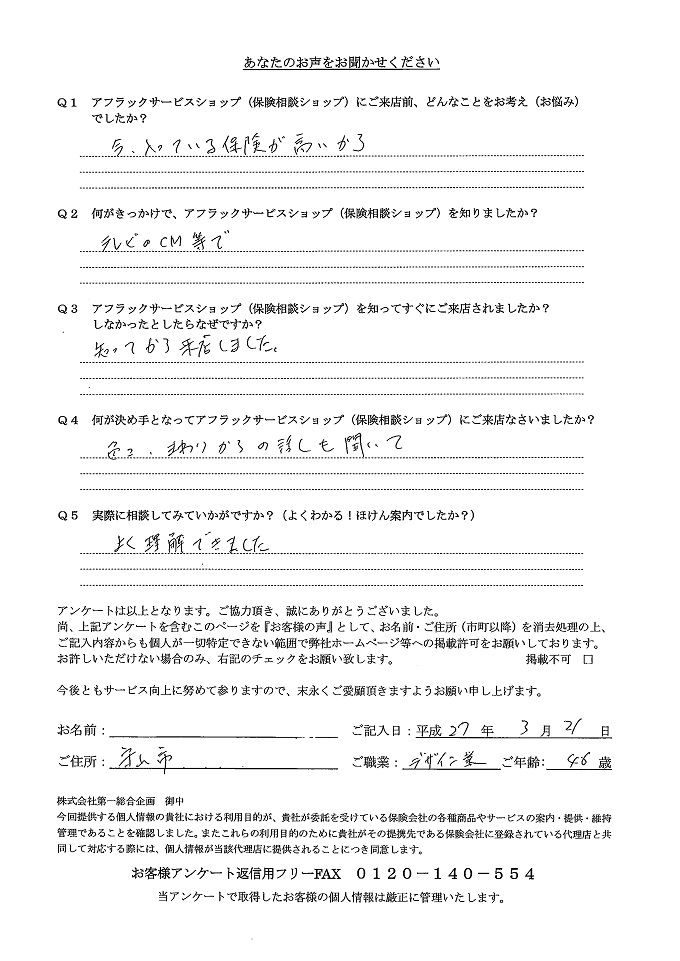 あなたのお声をお聞かせください
Q1 アフラックサービスショップ（保険相談ショップ）にご来店前、どんなことをお考え（お悩み）
でしたか？
今、入っている保険が高いから
Q2 何がきっかけで、アフラックサービスショップ（保険相談ショップ）を知りましたか？
テレビのCM等で
Q3 アフラックサービスショップ（保険相談ショップ）を知ってすぐにご来店されましたか？
しなかったとしたらなぜですか？
知ってから来店しました。
Q4 何が決め手となってアフラックサービスショップ（保険相談ショップ）にご来店なさいましたか？
色々、まわりからの話しも聞いて
Q5 実際に相談してみていかがですか？（よくわかる！ほけん案内でしたか？）
よく理解できました
アンケートは以上となります。ご協力頂き、誠にありがとうございました。
尚、上記アンケートを含むこのページを『お客様の声』として、お名前・ご住所（市町以降）を消去処理の上、
ご記入内容からも個人が一切特定できない範囲で弊社ホームページ等への掲載許可をお願いしております。
お許しいただけない場合のみ、右記のチェックをお願い致します。 掲載不可 □
今後ともサービス向上に努めて参りますので、末永くご愛顧頂きますようお願い申し上げます。
お名前： ご記入日：平成 27 年 3 月 21 日
ご住所： 市 ご職業： デザイン業 ご年齢： 46 歳
株式会社第一総合企画 御中
今回提供する個人情報の貴社における利用目的が、貴社が委託を受けている保険会社の各種商品やサービスの案内・提供・維持
管理であることを確認しました。またこれらの利用目的のために貴社がその提携先である保険会社に登録されている代理店と共
同して対応する際には、個人情報が当該代理店に提供されることにつき同意します。
お客様アンケート返信用フリーFAX 0120－140－554
当アンケートで取得したお客様の個人情報は厳正に管理いたします。